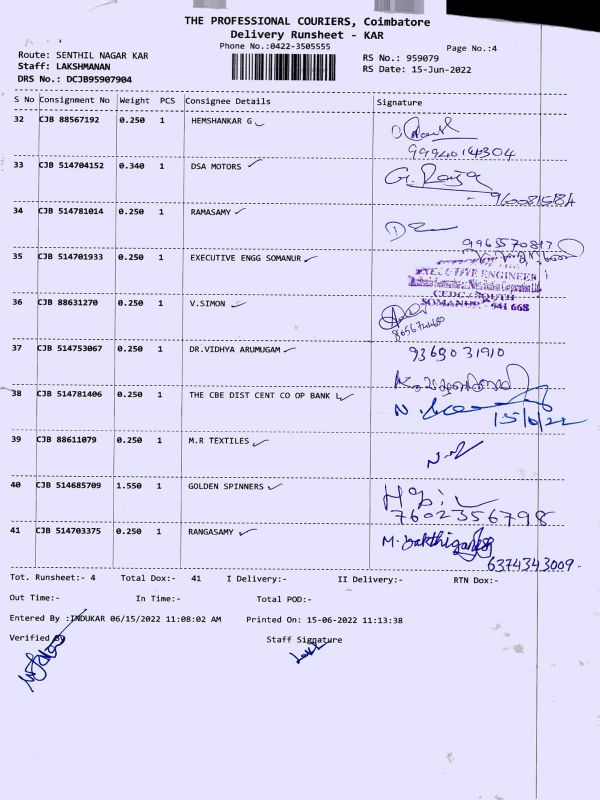 THE PROFESSIONAL COURIERS, Coimbatore
Delivery Runsheet - KAR
Phone No.:0422-3505555
Page No.:4
Route: SENTHIL NAGAR KAR
RS No.: 959079
Staff: LAKSHMANAN
RS Date: 15-Jun-2022
DRS No.: DCJB95907904
S No Consignment No Weight PCS Consignee Details Signature
32 CJB 88567192 0.250 1 HEMSHANKAR G
9994014304
33 CJB 514704152 0.340 1 DSA MOTORS
G. Raja
34 CJB 514781014 0.250 1 RAMASAMY
9965570817
35 CJB 514701933 0.250 1 EXECUTIVE ENGG SOMANUR
EXECUTIVE ENGINEER
SOMANUR - 641 668
36 CJB 88631270 0.250 1 V.SIMON
37 CJB 514753067 0.250 1 DR.VIDHYA ARUMUGAM
38 CJB 514781406 0.250 1 THE CBE DIST CENT CO OP BANK L
15/6/22
39 CJB 88611079 0.250 1 M.R TEXTILES
40 CJB 514685709 1.550 1 GOLDEN SPINNERS
7602356798
41 CJB 514703375 0.250 1 RANGASAMY
6374343009-
Tot. Runsheet:- 4 Total Dox:- 41 I Delivery:- II Delivery:- RTN Dox:-
Out Time:- In Time:- Total POD:-
Entered By :INDUKAR 06/15/2022 11:08:02 AM Printed On: 15-06-2022 11:13:38
Verified By Staff Signature